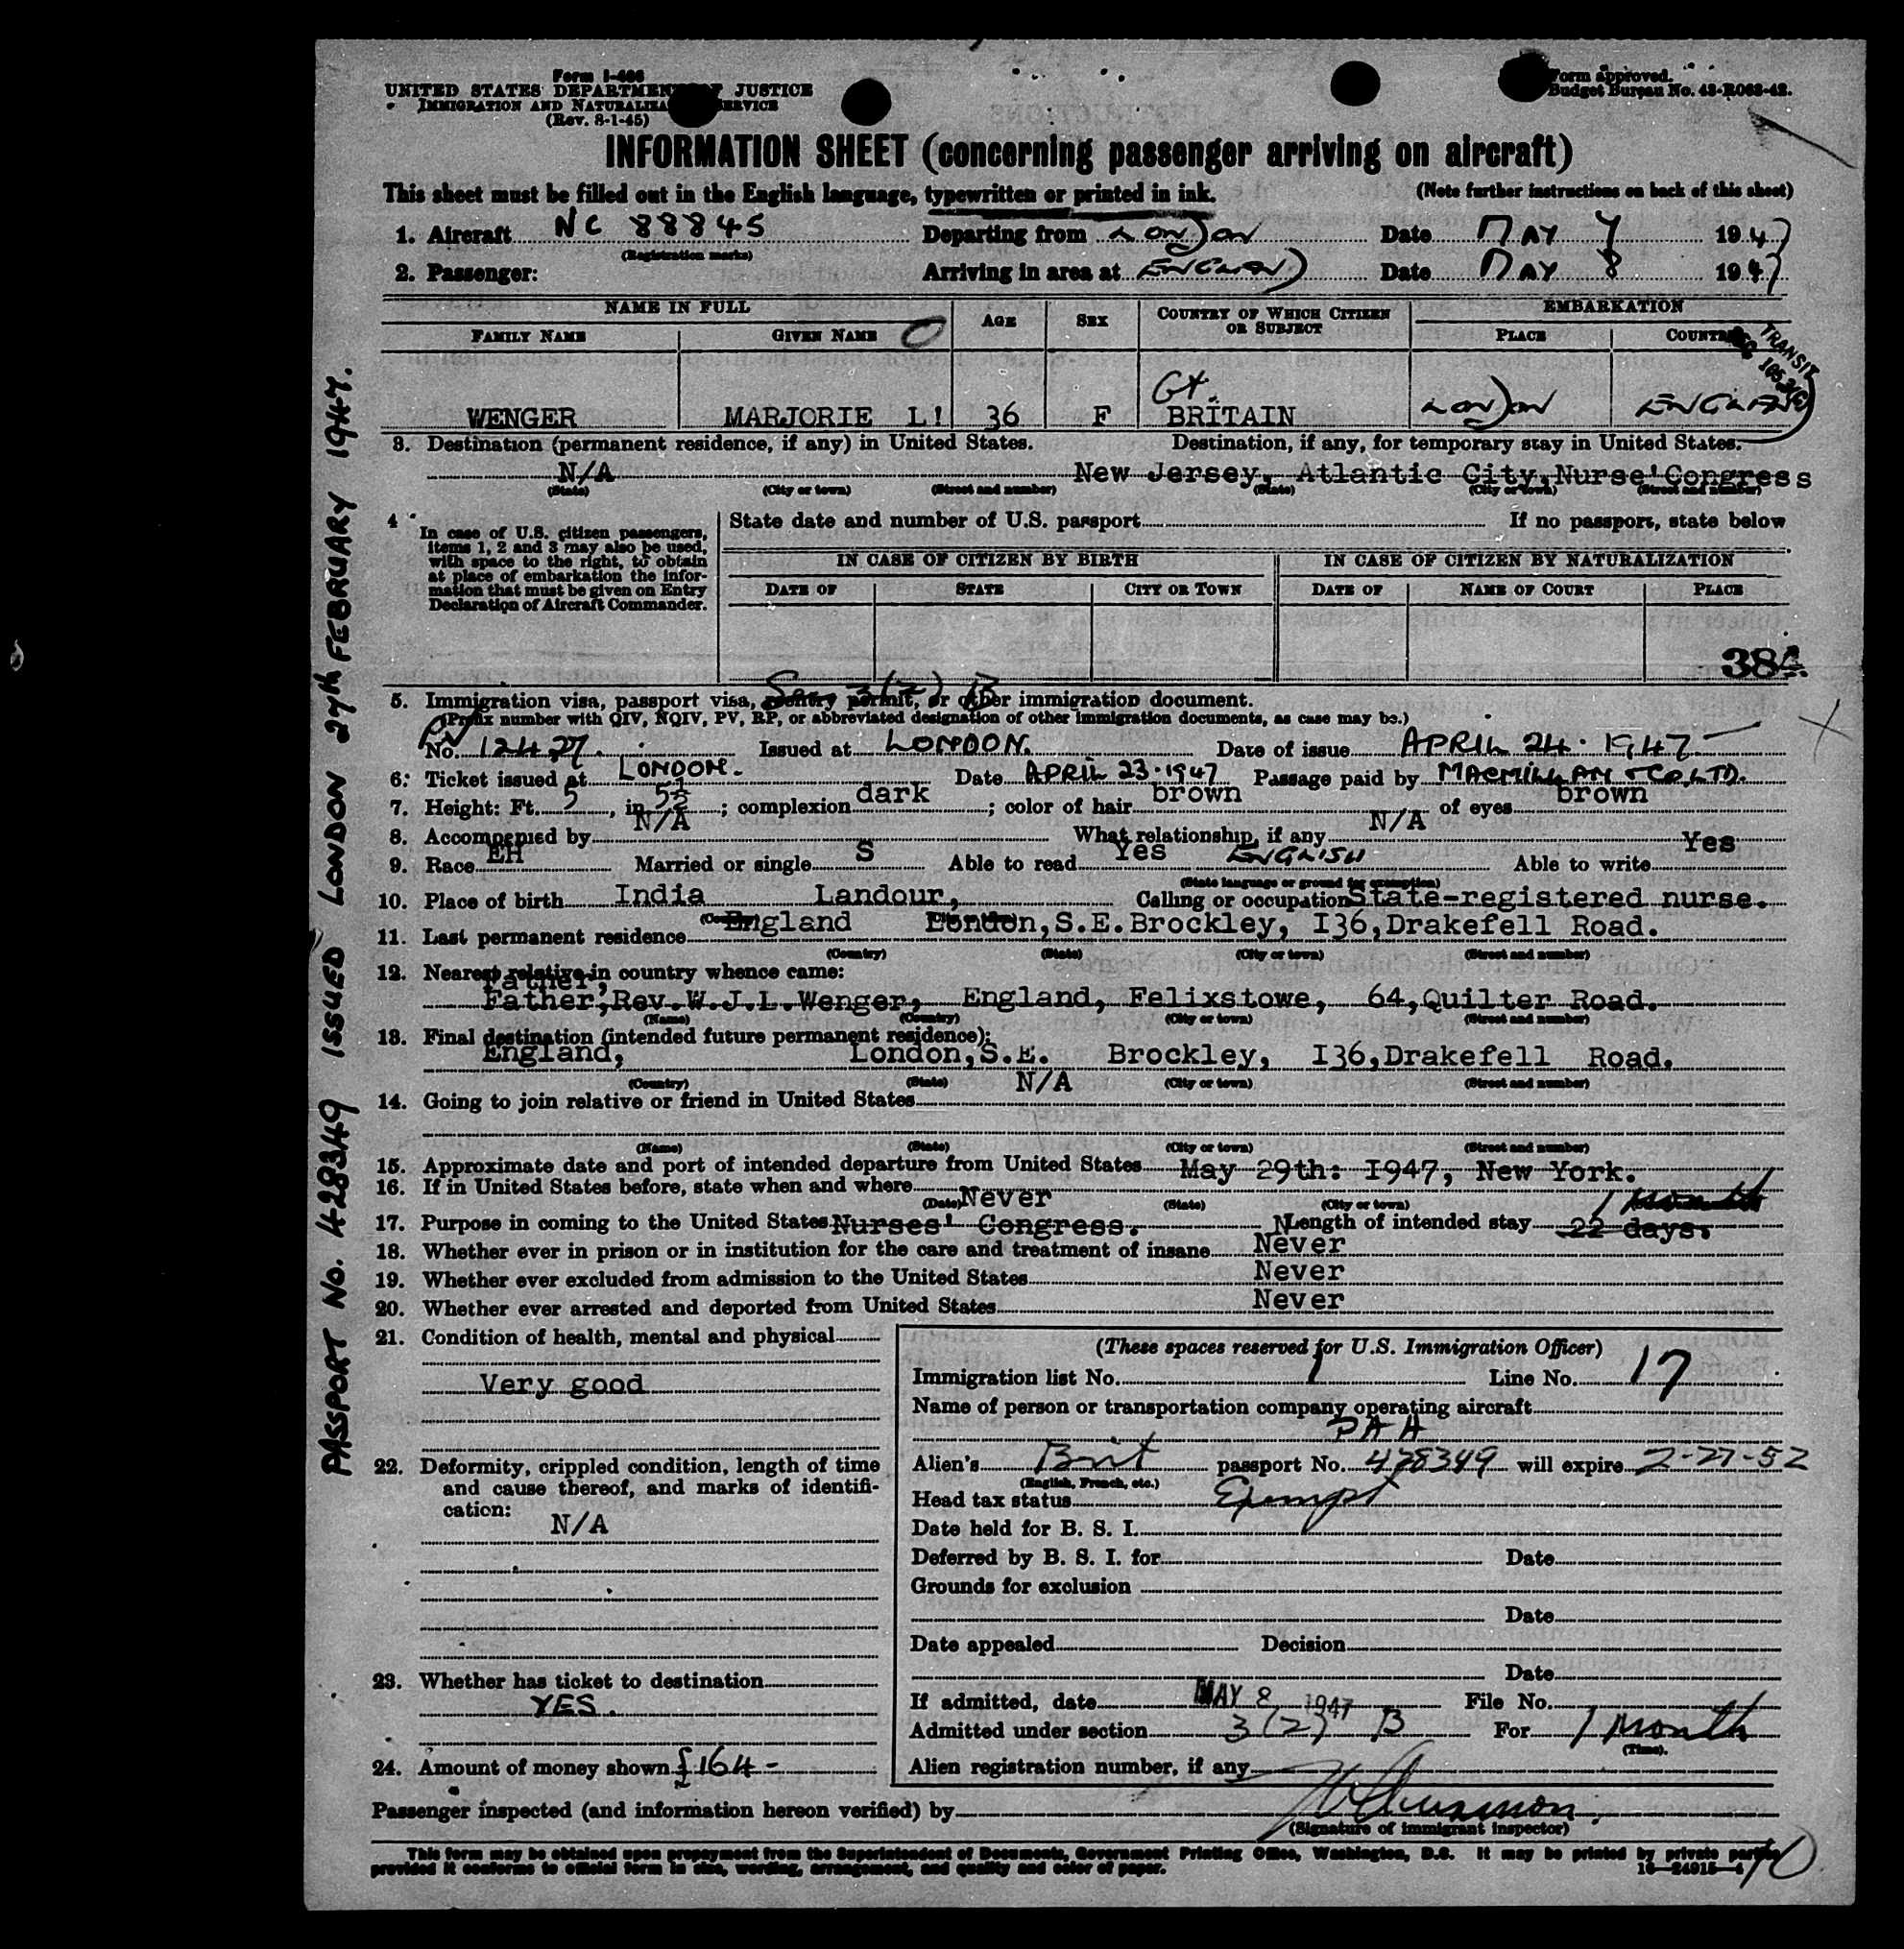 Form I-466
UNITED STATES DEPARTMENT OF JUSTICE
IMMIGRATION AND NATURALIZATION SERVICE
(Rev. 8-1-45)
Form approved.
Budget Bureau No. 43-R063-42.
INFORMATION SHEET (concerning passenger arriving on aircraft)
This sheet must be filled out in the English language, typewritten or printed in ink. (Note further instructions on back of this sheet)
1. Aircraft NC 88845 Departing from LONDON Date MAY 7 1947
(Registration marks)
2. Passenger: Arriving in area at ENGLAND Date MAY 8 1947
NAME IN FULL AGE SEX COUNTRY OF WHICH CITIZEN OR SUBJECT EMBARKATION
FAMILY NAME GIVEN NAME PLACE COUNTRY
TRANSIT
WENGER MARJORIE L! 36 F Gt. BRITAIN LONDON ENGLAND
3. Destination (permanent residence, if any) in United States. Destination, if any, for temporary stay in United States.
N/A New Jersey, Atlantic City, Nurse' Congress
(State) (City or town) (Street and number) (State) (City or town) (Street and number)
4 In case of U.S. citizen passengers, items 1, 2 and 3 may also be used, with space to the right, to obtain at place of embarkation the information that must be given on Entry Declaration of Aircraft Commander.
State date and number of U.S. passport If no passport, state below
IN CASE OF CITIZEN BY BIRTH IN CASE OF CITIZEN BY NATURALIZATION
DATE OF STATE CITY OR TOWN DATE OF NAME OF COURT PLACE
38
5. Immigration visa, passport visa, reentry permit, or other immigration document.
Sec 3(2) B
(Prefix number with QIV, NQIV, PV, RP, or abbreviated designation of other immigration documents, as case may be.)
PV No. 12427. Issued at LONDON. Date of issue APRIL 24. 1947
6. Ticket issued at LONDON. Date APRIL 23. 1947 Passage paid by MACMILLAN & CO. LTD.
7. Height: Ft. 5, in 5½; complexion dark; color of hair brown of eyes brown
8. Accompanied by N/A What relationship, if any N/A
9. Race EH Married or single S Able to read Yes ENGLISH Able to write Yes
(State language or ground for exemption)
10. Place of birth India Landour, Calling or occupation State-registered nurse.
(Country)
11. Last permanent residence England London, S.E. Brockley, I36, Drakefell Road.
(Country) (State) (City or town) (Street and number)
12. Nearest relative in country whence came:
Father,
Father, Rev. W.J.L. Wenger, England, Felixstowe, 64, Quilter Road.
(Name) (Country) (City or town) (Street and number)
13. Final destination (intended future permanent residence):
England, London, S.E. Brockley, I36, Drakefell Road.
(Country) (State) (City or town) (Street and number)
14. Going to join relative or friend in United States N/A
(Name) (State) (City or town) (Street and number)
15. Approximate date and port of intended departure from United States May 29th: I947, New York.
16. If in United States before, state when and where Never
(Date) (State) (City or town)
17. Purpose in coming to the United States Nurses' Congress. Length of intended stay 22 days. 1 month
18. Whether ever in prison or in institution for the care and treatment of insane Never
19. Whether ever excluded from admission to the United States Never
20. Whether ever arrested and deported from United States Never
21. Condition of health, mental and physical
Very good
22. Deformity, crippled condition, length of time and cause thereof, and marks of identification:
N/A
23. Whether has ticket to destination
YES.
24. Amount of money shown £164-
(These spaces reserved for U.S. Immigration Officer)
Immigration list No. 1 Line No. 17
Name of person or transportation company operating aircraft
PAA
Alien's Brit passport No. 428349 will expire 2-27-52
(English, French, etc.)
Head tax status Exempt
Date held for B. S. I.
Deferred by B. S. I. for Date
Grounds for exclusion
Date
Date appealed Decision
Date
If admitted, date MAY 8 1947 File No.
Admitted under section 3(2) B For 1 month
(Time).
Alien registration number, if any
Passenger inspected (and information hereon verified) by
(Signature of immigrant inspector)
This form may be obtained upon prepayment from the Superintendent of Documents, Government Printing Office, Washington, D.C. It may be printed by private parties
provided it conforms to official form in size, wording, arrangement, and quality and color of paper. 16—24915-4
10
PASSPORT No. 428349 ISSUED LONDON 27th FEBRUARY 1947.